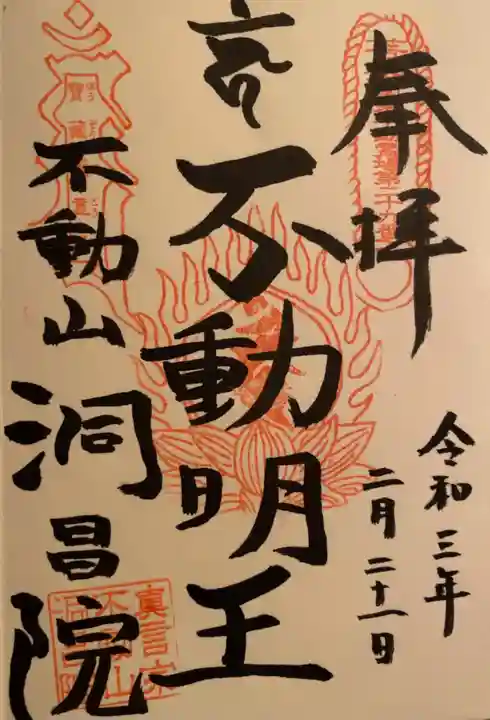 奉拝
令和三年
二月二十一日
不動明王
不動山
洞昌院
真言宗